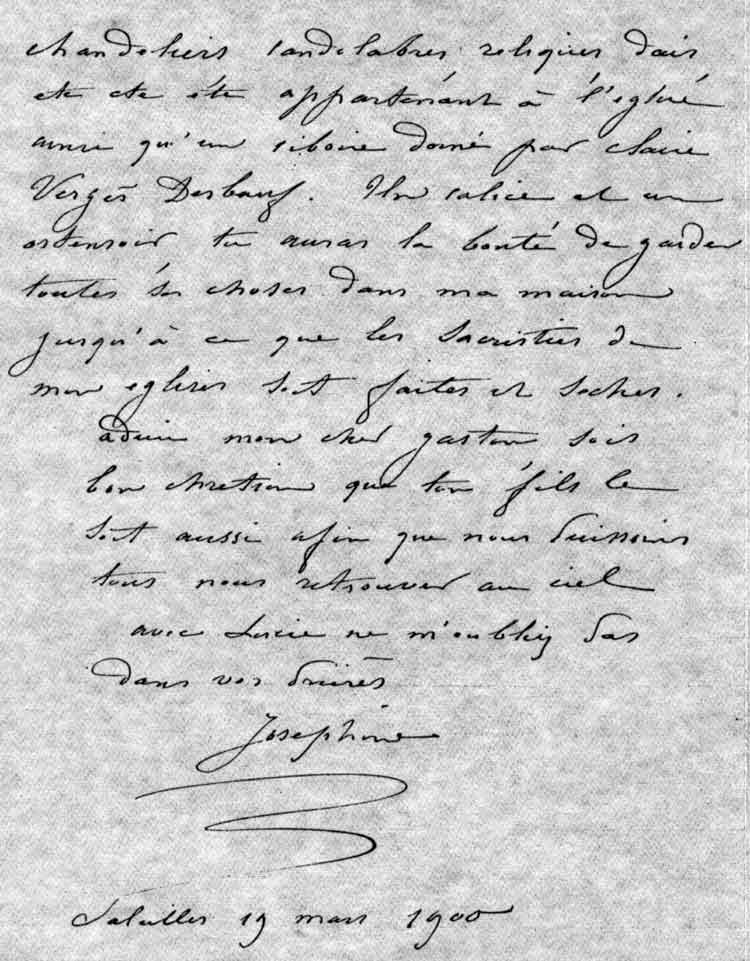 chandeliers candelabres reliques dais
etc etc etc appartenant à l'eglise
ainsi qu'un ciboire donné par Claire
Vergès Desbœuf. Un calice et un
ostensoir tu auras la bonté de garder
toutes ses choses dans ma maison
jusqu'à ce que les sacristies de
mon eglises soit faites et seches.
adieu mon cher gaston sois
bon chretien que ton fils le
soit aussi afin que nous puissions
tous nous retrouver au ciel
avec Lucie ne m'oubliez pas
dans vos prières
Josephine
Saleilles 19 mars 1900